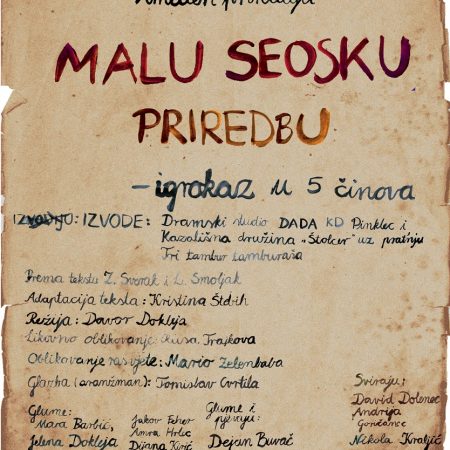 MALU SEOSKU
PRIREDBU
- igrokaz u 5 činova
IZVODIJO: IZVODE: Dramski studio DADA KD Pinklec i
Kazališna družina „Štolcer" uz pratnju
Tri tambur tamburaša
Prema tekstu Z. Sverak i L. Smoljak
Adaptacija teksta: Kristina Štebih
Režija: Davor Dokleja
Likovno oblikovanje: Rusa Trajkova
Oblikovanje rasvjete: Mario Zelenbaba
Glazba (aranžman): Tomislav Cvrtila
Glume:
Mara Barbić,
Jelena Dokleja
Jakov Feher
Amra Hrlec
Dijana Kirić
Glume i
pjevaju:
Dejan Buvač
Sviraju:
David Dolenec
Andrija
Goričanec
Nikola Kraljić